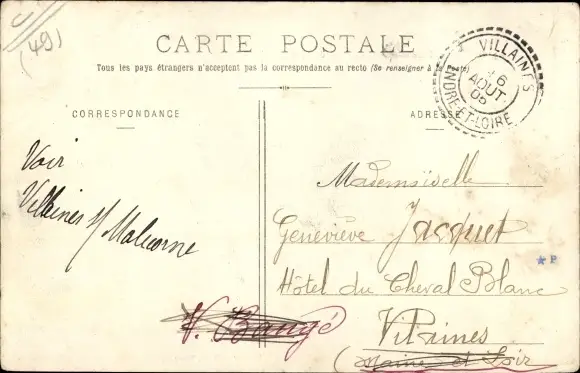 (49)
CARTE POSTALE
Tous les pays étrangers n'acceptent pas la correspondance au recto (Se renseigner à la Poste)
VILLAINES
6
AOUT
05
INDRE-ET-LOIRE
CORRESPONDANCE
ADRESSE
Voir
Villaines s/ Malicorne
Mademoiselle
Geneviève Jacquet
Hôtel du Cheval Blanc
★ P
V. Baugé
Villaines
(Maine et Loir